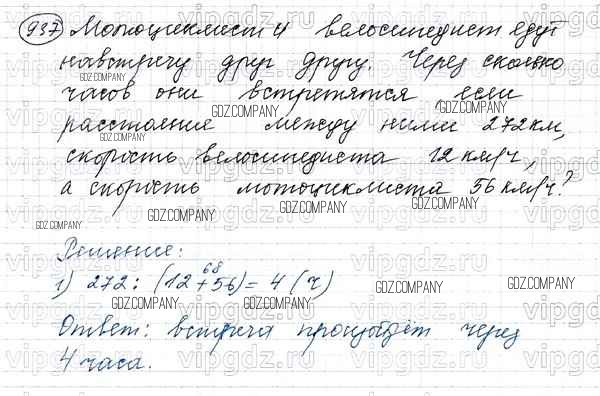 937 Мотоциклист и велосипедист едут
навстречу друг другу. Через сколько
часов они встретятся если
расстояние между ними 272 км,
скорость велосипедиста 12 км/ч,
а скорость мотоциклиста 56 км/ч?
Решение:
68
1) 272 : (12 + 56) = 4 (ч)
Ответ: встреча произойдёт через
4 часа.
vipgdz.ru
GDZ.COMPANY